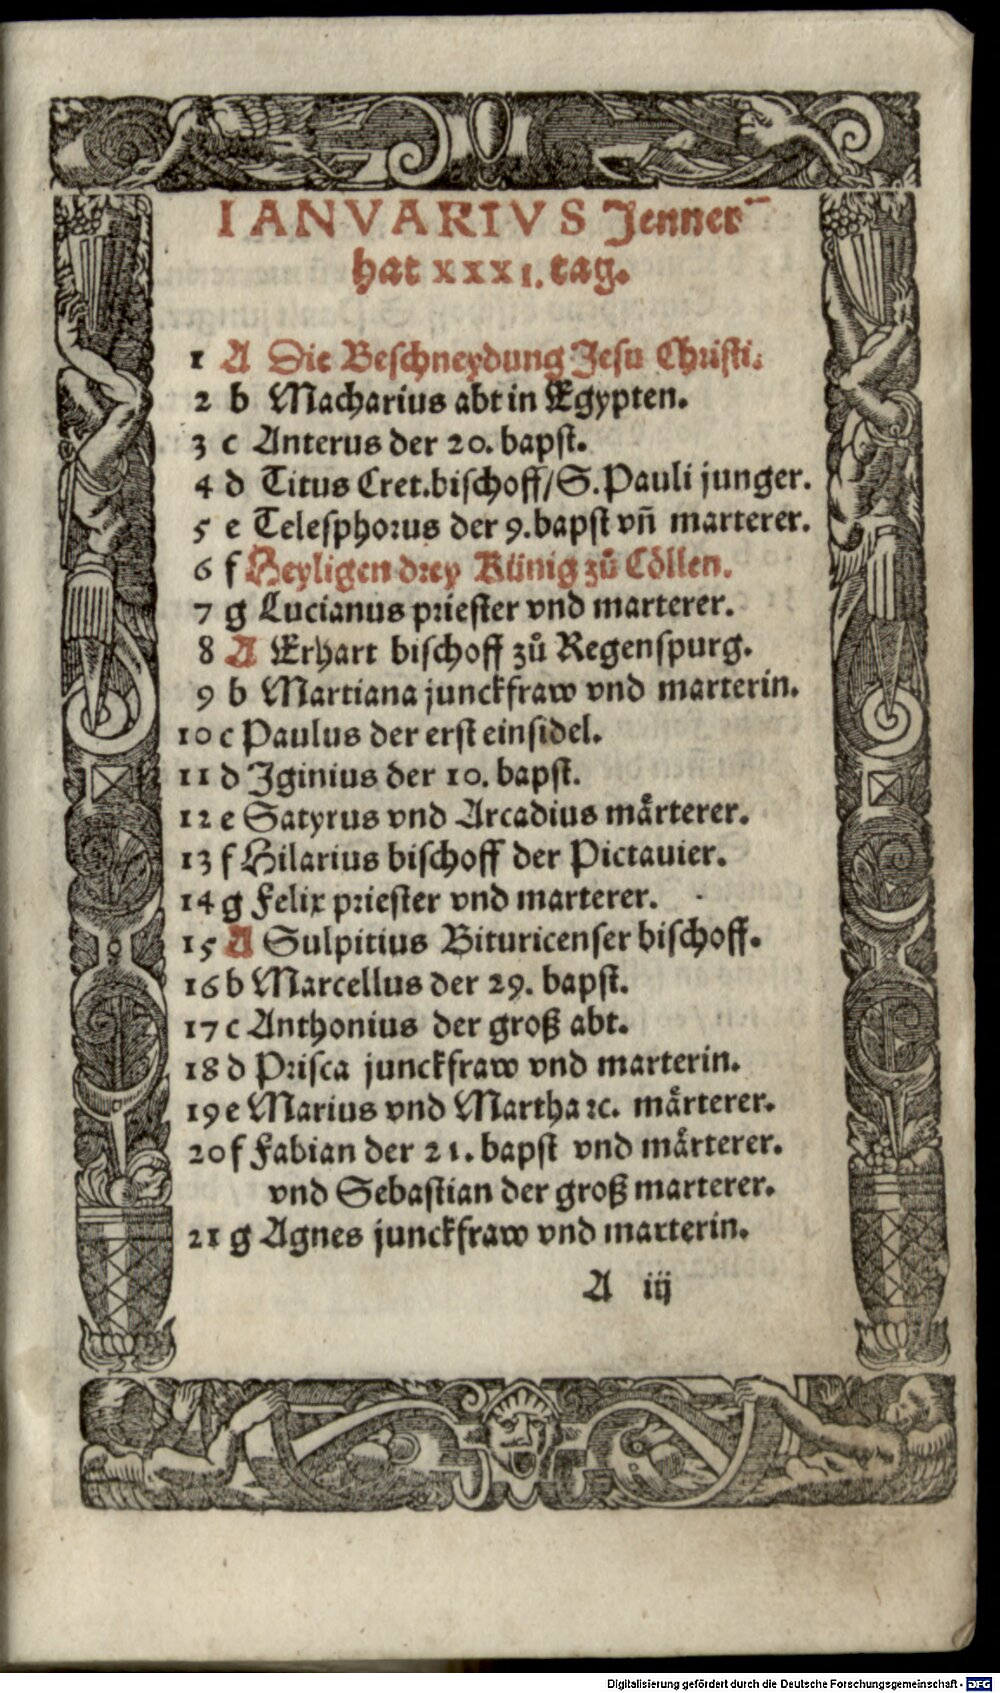 IANVARIVS Jenner
hat xxxi. tag.
1 A Die Beschneydung Jesu Christi.
2 b Macharius abt in Egypten.
3 c Anterus der 20. bapst.
4 d Titus Cret. bischoff/ S. Pauli junger.
5 e Telesphorus der 9. bapst vn̄ marterer.
6 f Heyligen drey Künig zů Cöllen.
7 g Lucianus priester vnd marterer.
8 A Erhart bischoff zů Regenspurg.
9 b Martiana junckfraw vnd marterin.
10 c Paulus der erst einsidel.
11 d Iginius der 10. bapst.
12 e Satyrus vnd Arcadius maͤrterer.
13 f Hilarius bischoff der Pictauier.
14 g Felix priester vnd marterer.
15 A Sulpitius Bituricenser bischoff.
16 b Marcellus der 29. bapst.
17 c Anthonius der groß abt.
18 d Prisca junckfraw vnd marterin.
19 e Marius vnd Martha ꝛc. maͤrterer.
20 f Fabian der 21. bapst vnd maͤrterer.
vnd Sebastian der groß marterer.
21 g Agnes junckfraw vnd marterin.
A iij
Digitalisierung gefördert durch die Deutsche Forschungsgemeinschaft - DFG